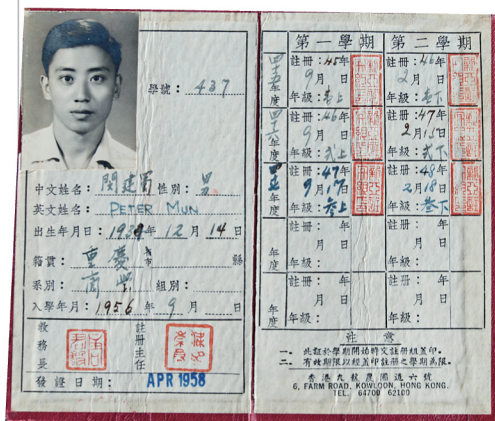 學號: 437
中文姓名: 閔建蜀 性別: 男
英文姓名: PETER MUN
出生年月日: 193 年 12 月 14 日
籍貫: 重慶 市 縣
系別: 商學 組別:
入學年月: 1956 年 9 月 日
教務長
註冊主任
發證日期: APR 1958
第一學期 第二學期
四十五年度
註冊: 45年 9月 日
年級: 壹上
註冊: 46年 2月 日
年級: 壹下
四十六年度
註冊: 46年 9月 日
年級: 弍上
註冊: 47年 2月15日
年級: 弍下
年度
註冊: 47年 9月17日
年級: 叁上
註冊: 48年 2月18日
年級: 叁下
年度
註冊: 年 月 日
年級:
註冊: 年 月 日
年級:
注意
一. 此證於學期開始時交註冊組蓋印。
二. 有效期限以經蓋印註冊之學期為限。
香港九龍農圃道六號
6, FARM ROAD, KOWLOON, HONG KONG.
TEL. 64700 62100